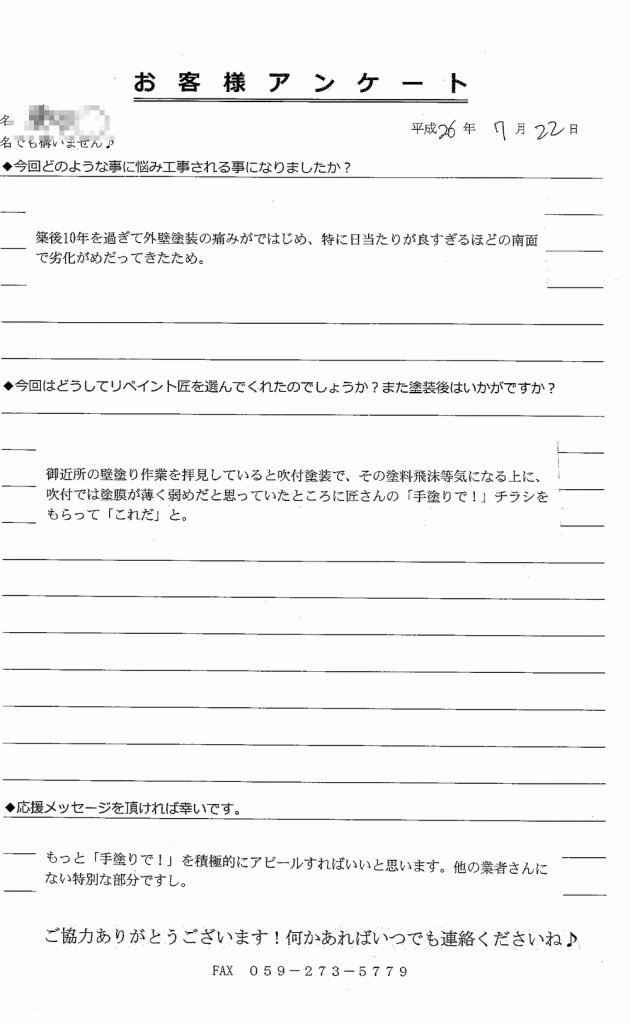 お客様アンケート
名
平成26年 7月22日
名でも構いません♪
◆今回どのような事に悩み工事される事になりましたか？
築後10年を過ぎて外壁塗装の痛みがではじめ、特に日当たりが良すぎるほどの南面
で劣化がめだってきたため。
◆今回はどうしてリペイント匠を選んでくれたのでしょうか？また塗装後はいかがですか？
御近所の壁塗り作業を拝見していると吹付塗装で、その塗料飛沫等気になる上に、
吹付では塗膜が薄く弱めだと思っていたところに匠さんの「手塗りで！」チラシを
もらって「これだ」と。
◆応援メッセージを頂ければ幸いです。
もっと「手塗りで！」を積極的にアピールすればいいと思います。他の業者さんに
ない特別な部分ですし。
ご協力ありがとうございます！何かあればいつでも連絡くださいね♪
FAX ０５９－２７３－５７７９